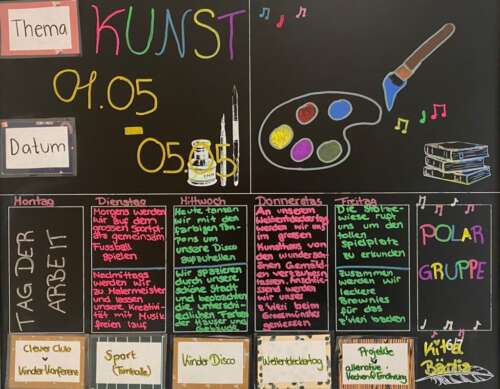 Thema
KUNST
01.05
-
05.05
Datum
Montag
Dienstag
Mittwoch
Donnerstag
Freitag
TAG DER
ARBEIT
Morgens werden
wir auf dem
grossen Sportpl-
atz gemeinsam
Fussball
spielen
Nachmittags werden
wir zu Malermeister
und lassen
unsere Kreativi-
tät mit Musik
freien lauf
Heute tanzen
wir mit den
farbigen Pom-
pons um
unsere Disco
Wir spazieren
durch unsere
schöne Stadt
und beobachten
die untersch-
iedlichen Farben
der Häuser und
Gebäude
An unserem
Weltentdeckertag
werden wir uns
im grossen
Kunsthaus von
den wundersch-
önen Gemälden
verzaubern
lassen. Anschlie-
ssend werden
wir unser
z'vieri beim
Grossmünster
geniessen
Die
wiese ruft
uns um den
tollen
spielplatz
zu erkunden
Zusammen
werden wir
leckere
Brownies
für das
z'vieri backen
POLAR
GRUPPE
Clever Club
Kinder Konferenz
Sport
(Turnhalle)
Kinder Disco
Weltentdeckertag
Projekte
Kita